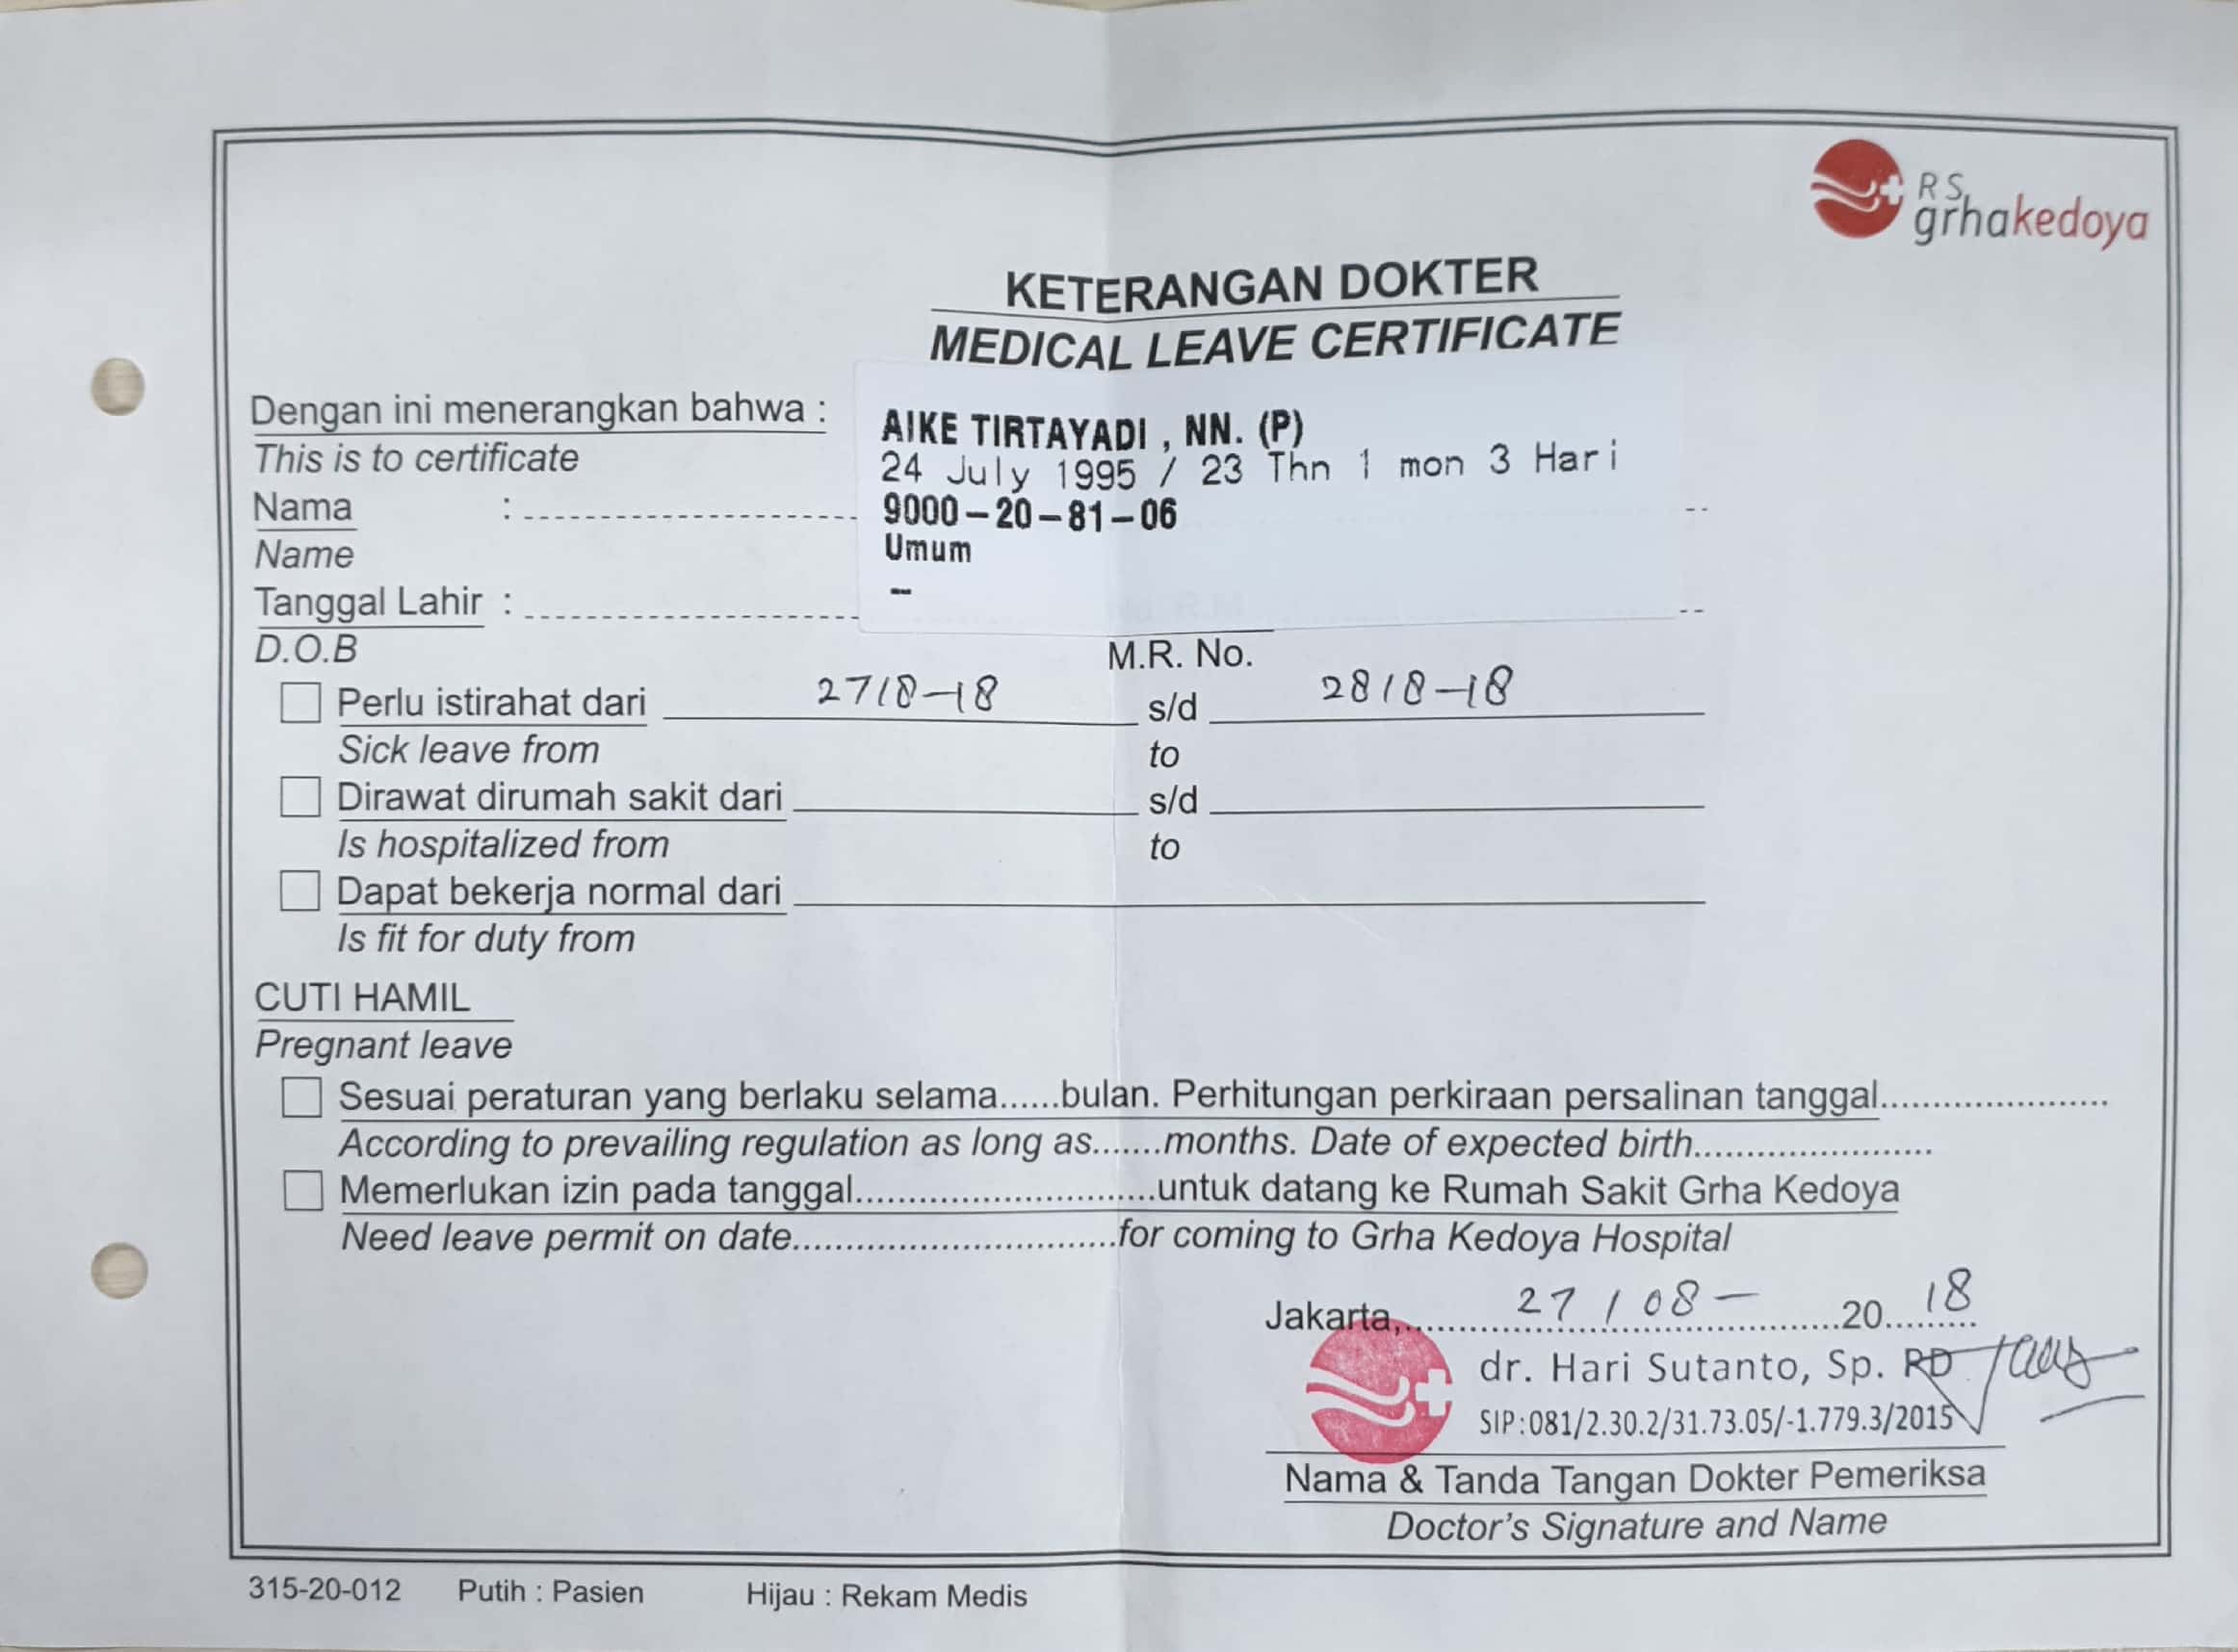 RS
grhakedoya
KETERANGAN DOKTER
MEDICAL LEAVE CERTIFICATE
Dengan ini menerangkan bahwa :
This is to certificate
AIKE TIRTAYADI , NN. (P)
24 July 1995 / 23 Thn 1 mon 3 Hari
9000-20-81-06
Umum
--
Nama :
Name
Tanggal Lahir :
D.O.B
M.R. No.
Perlu istirahat dari 27/8-18 s/d 28/8-18
Sick leave from to
Dirawat dirumah sakit dari s/d
Is hospitalized from to
Dapat bekerja normal dari
Is fit for duty from
CUTI HAMIL
Pregnant leave
Sesuai peraturan yang berlaku selama......bulan. Perhitungan perkiraan persalinan tanggal......................
According to prevailing regulation as long as.......months. Date of expected birth.......................
Memerlukan izin pada tanggal.............................untuk datang ke Rumah Sakit Grha Kedoya
Need leave permit on date...............................for coming to Grha Kedoya Hospital
Jakarta, 27/08- 20 18
dr. Hari Sutanto, Sp. RD
SIP:081/2.30.2/31.73.05/-1.779.3/2015
Nama & Tanda Tangan Dokter Pemeriksa
Doctor's Signature and Name
315-20-012 Putih : Pasien Hijau : Rekam Medis